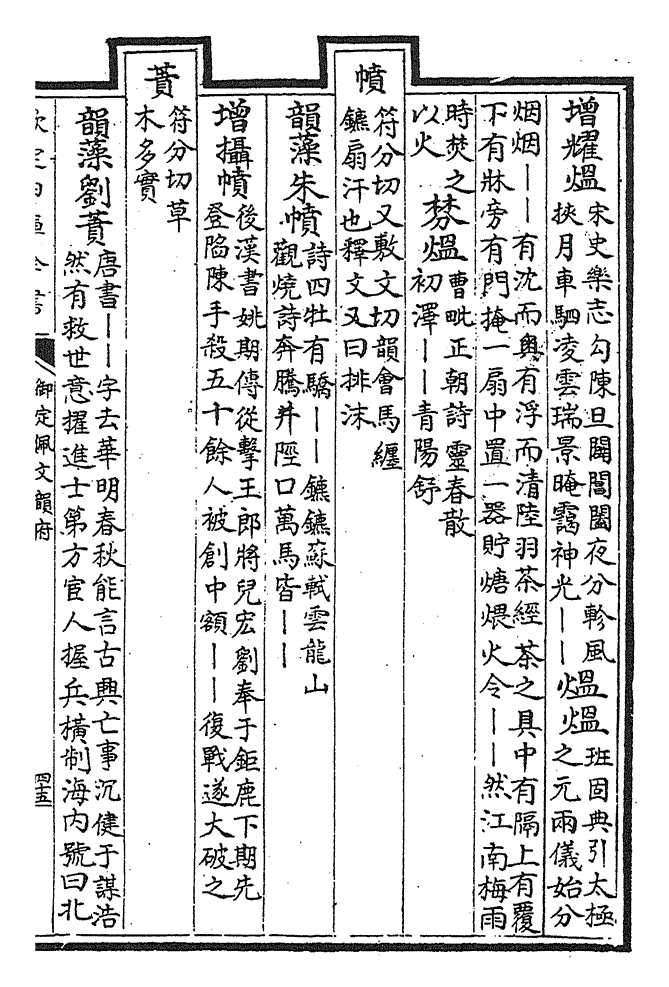 增耀熅 宋史樂志勾陳旦闢閶闔夜分軫風
挾月車駟凌雲瑞景晻靄神光――
熅熅 班固典引太極
之元兩儀始分
烟烟――有沈而奧有浮而清陸羽茶經茶之具中有隔上有覆
下有牀旁有門掩一扇中置一器貯煻煨火令――然江南梅雨
時焚之
以火
棼熅 曹毗正朝詩靈春散
初澤――青陽舒
幩
符分切又敷文切韻會馬纏
鑣扇汗也釋文又曰排沫
韻藻朱幩 詩四牡有驕――鑣鑣蘇軾雲龍山
觀燒詩奔騰井陘口萬馬皆――
增攝幩 後漢書姚期傳從擊王郎將兒宏劉奉于鉅鹿下期先
登陷陳手殺五十餘人被創中額――復戰遂大破之
蕡
符分切草
木多實
韻藻劉蕡 唐書――字去華明春秋能言古興亡事沉健于謀浩
然有救世意擢進士第方宦人握兵橫制海內號曰北
欽定四庫全書
御定佩文韻府